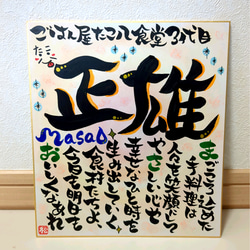 ごはん屋たこ八食堂34代目
たこ八
正雄
masao
まごころ込めた
手料理は
人々を笑顔にして
やさしい心も
幸せなひと時を
生み出していく
食材たちよ
今日も明日も
おいしくなあれ